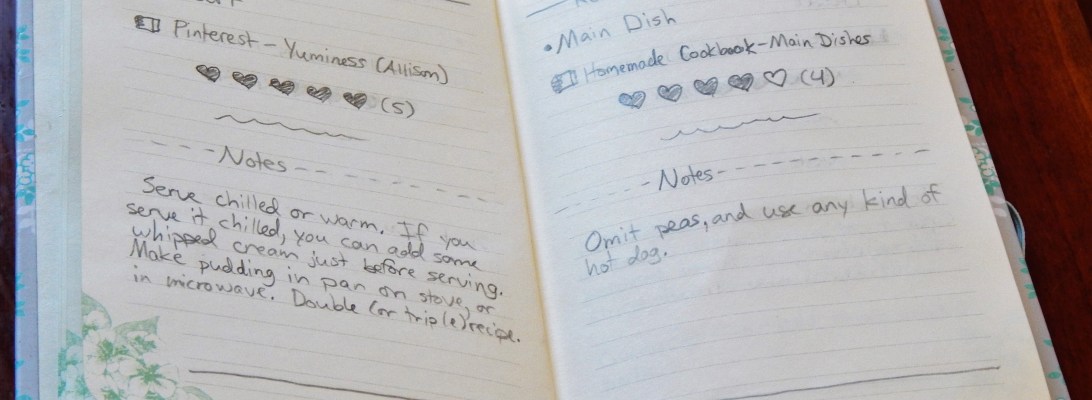 Pinterest - Yuminess (Allison)
(5)
Notes
Serve chilled or warm. If you
serve it chilled, you can add some
whipped cream just before serving.
Make pudding in pan on stove, or
in microwave. Double (or triple) recipe.
• Main Dish
Homemade Cookbook - Main Dishes
(4)
Notes
Omit peas, and use any kind of
hot dog.